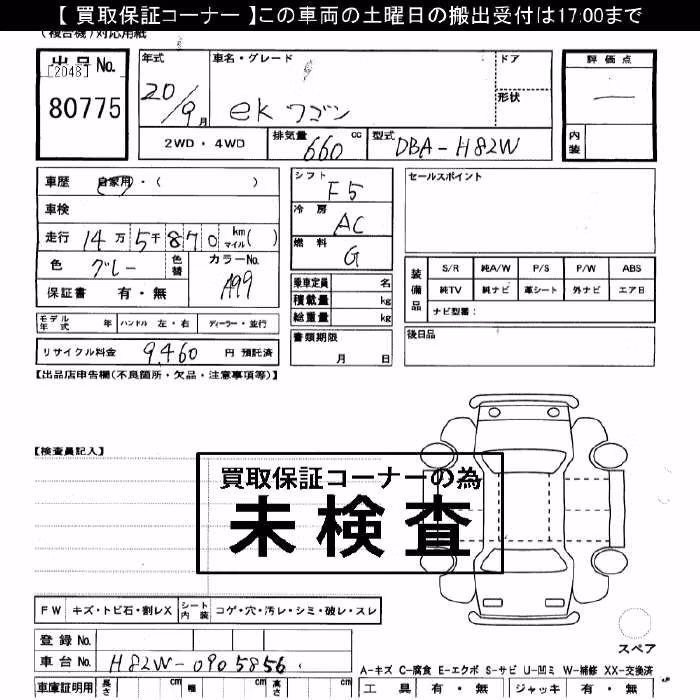 【 買取保証コーナー 】この車両の土曜日の搬出受付は17:00まで
(複合機)対応用紙
出品 No.
[2048]
80775
年式
20/9月
車名・グレード
ek ワゴン
ドア
形状
評価点
—
内装
2WD・4WD
排気量
660 cc
型式
DBA-H82W
車歴 自家用・( )
車検
走行 14万 5千 870 km マイル( )
色 グレー 色替
カラーNo. A99
保証書 有・無
シフト F5
冷房 AC
燃料 G
乗車定員 名
積載量 kg
総重量 kg
セールスポイント
装備品
S/R 純A/W P/S P/W ABS
純TV 純ナビ 革シート 外ナビ エアB
ナビ型番:
モデル年式 年 ハンドル 左・右 ディーラー・並行
リサイクル料金 9,460 円 預託済
書類期限 月 日
後日品
【出品店申告欄(不良箇所・欠品・注意事項等)】
【検査員記入】
買取保証コーナーの為
未検査
FW キズ・トビ石・割レX シート内装 コゲ・穴・汚レ・シミ・破レ・スレ
スペア
登録 No.
車台 No. H82W-0905856
A-キズ C-腐食 E-エクボ S-サビ U-凹ミ W-補修 XX-交換済
車庫証明用 長さ cm 幅 cm 高さ cm
工具 有・無 ジャッキ 有・無